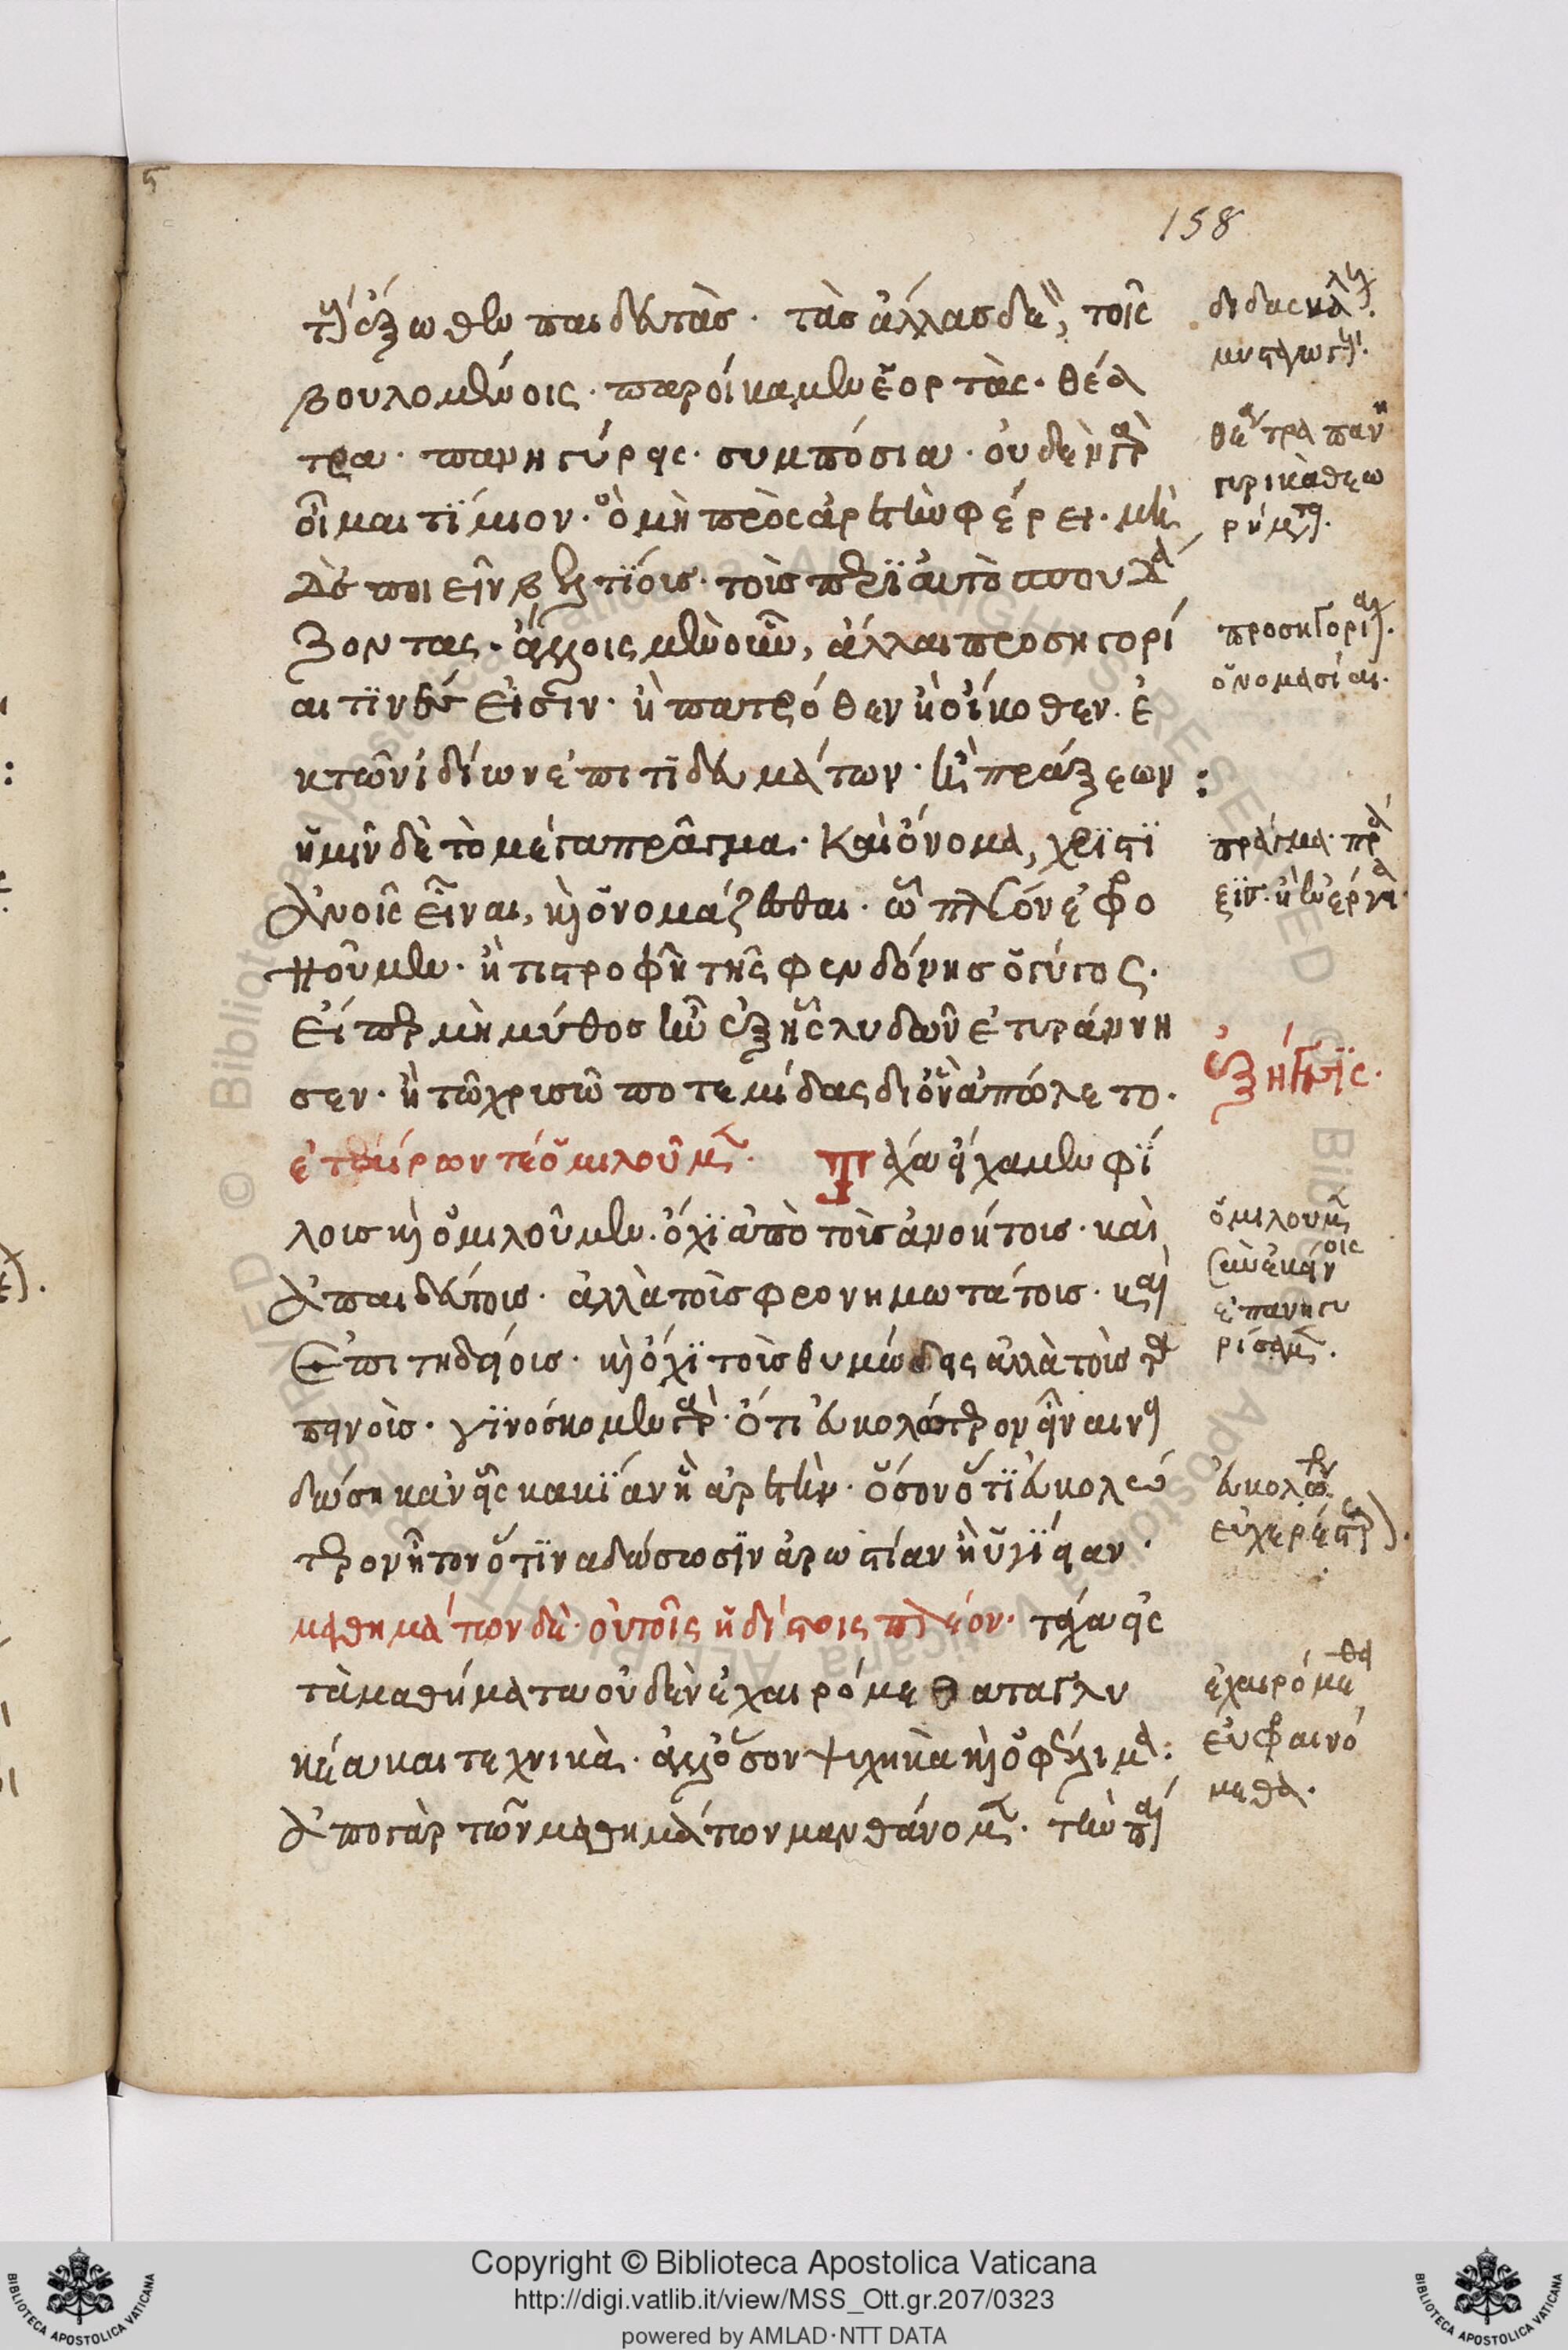 158
τοὺς ἔξωθεν παιδευτάς· τὰσ ἄλλασ δὲ, τοῖς
βουλομένοις παροίκαμεν ἑορτὰς· θέα
τρα· πανηγύρεις· συμπόσια· οὐδὲν γὰρ
οἶμαι τΐμιον· ὃ μὴ πρὸς ἀρετὴν φέρει· μη
δὲ ποιεῖν βελτΐοισ· τοὺσ περΐ αὐτὸ σπουδά
ζοντας· ἄλλοις μὲν οὖν, ἄλλαι προσηγορί
αι τϊνές εἴσιν· ἢ πατρόθεν ἢ οἴκοθεν· ἐ
κ τῶν ἰδίων ἐπιτϊδευμάτων· καὶ πράξεων :
ἡμῖν δὲ τὸ μέγα πρᾶγμα· Καὶ ὄνομα, χρϊστϊ
ἀνοῖς εἶναι, καὶ ὀνομάζεσθαι· ὧ πλέον ἐφρο
νοῦμεν· ἢ τι στροφῆ τῆς φενδόνησ ὁ γύγος·
Εἴπερ μὴ μύθοσ ἦν ἐξ ἧς λυδῶν ἐτυράννη
σεν· ἢ τῶ χρισῶ ποτε μίδας δι ὃν ἀπόλετο·
ἑταίρων τέ ὁμιλοῦμεν· Τάχα εἴχαμεν φΐ
λοισ καὶ ὁμιλοῦμεν· ὄχϊ ἀπὸ τοὺσ ἀνοήτοις· καὶ
ἀπαιδεύτοισ· ἀλλὰ τοὺσ φρονημωτάτοισ· καὶ
Ἐπιτηδείοισ· καὶ ὄχϊ τοὺσ θυμώδεις ἀλλὰ τοὺσ τα
πεινοὺσ· γϊνόσκομεν γὰρ· ὅτι εὐκολώτερον εἶναι να
δώση κανεὶς κακΐαν ἢ ἀρετὴν· ὅσον ὅτϊ εὐκολώ
τερον ἦτον ὅτϊ να δώσωσϊν ἀρωστίαν ἢ ὑγϊείαν·
μαθημάτων δὲ· οὐ τοῖς ἡδίστοις πλέον· τάχα εἰς
τὰ μαθήματα οὐδὲν ἐχαιρόμεθα τα γλυ
κέα και τεχνικὰ· ἀλλ' ὅσον ψιχηκὰ καὶ ὀφέλιμα :
Ἀπο γὰρ τῶν μαθημάτων μανθάνομεν· τὴν παι
διδασκάλους·
μυσταγωγούς·
θέατρα πανη
γυρικὰ θεω
ρήματα·
προσηγορίαι·
ὀνομασίαι·
πράγμα· πρά
ξϊσ· ἢ ἐνέργεια·
ἐξήγησϊς·
ὁμιλοῦμεν
ἐπανηγυ
ρίσαμεν·
εὐκολώτερον
εὐχερέστερον·
ἐχαιρόμεθα
εὐφραινό
μεθα·
Copyright © Biblioteca Apostolica Vaticana
http://digi.vatlib.it/view/MSS_Ott.gr.207/0323
powered by AMLAD·NTT DATA
BIBLIOTECA APOSTOLICA VATICANA
BIBLIOTECA APOSTOLICA VATICANA